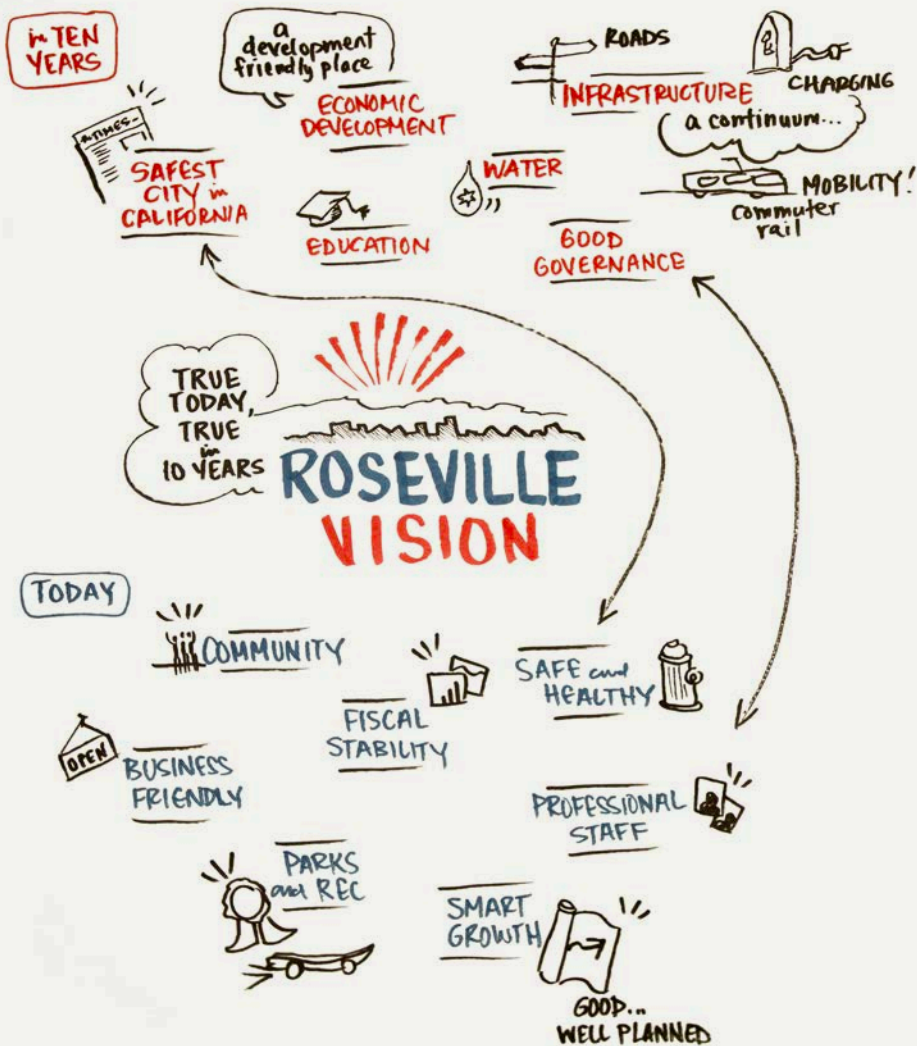 in TEN
YEARS
a
development
friendly place
ECONOMIC
DEVELOPMENT
ROADS
INFRASTRUCTURE
CHARGING
a continuum...
MOBILITY!
commuter
rail
TIMES
SAFEST
CITY in
CALIFORNIA
EDUCATION
WATER
GOOD
GOVERNANCE
TRUE
TODAY,
TRUE
in
10 YEARS
ROSEVILLE
VISION
TODAY
COMMUNITY
FISCAL
STABILITY
SAFE and
HEALTHY
OPEN
BUSINESS
FRIENDLY
PROFESSIONAL
STAFF
PARKS
and REC
SMART
GROWTH
GOOD...
WELL PLANNED